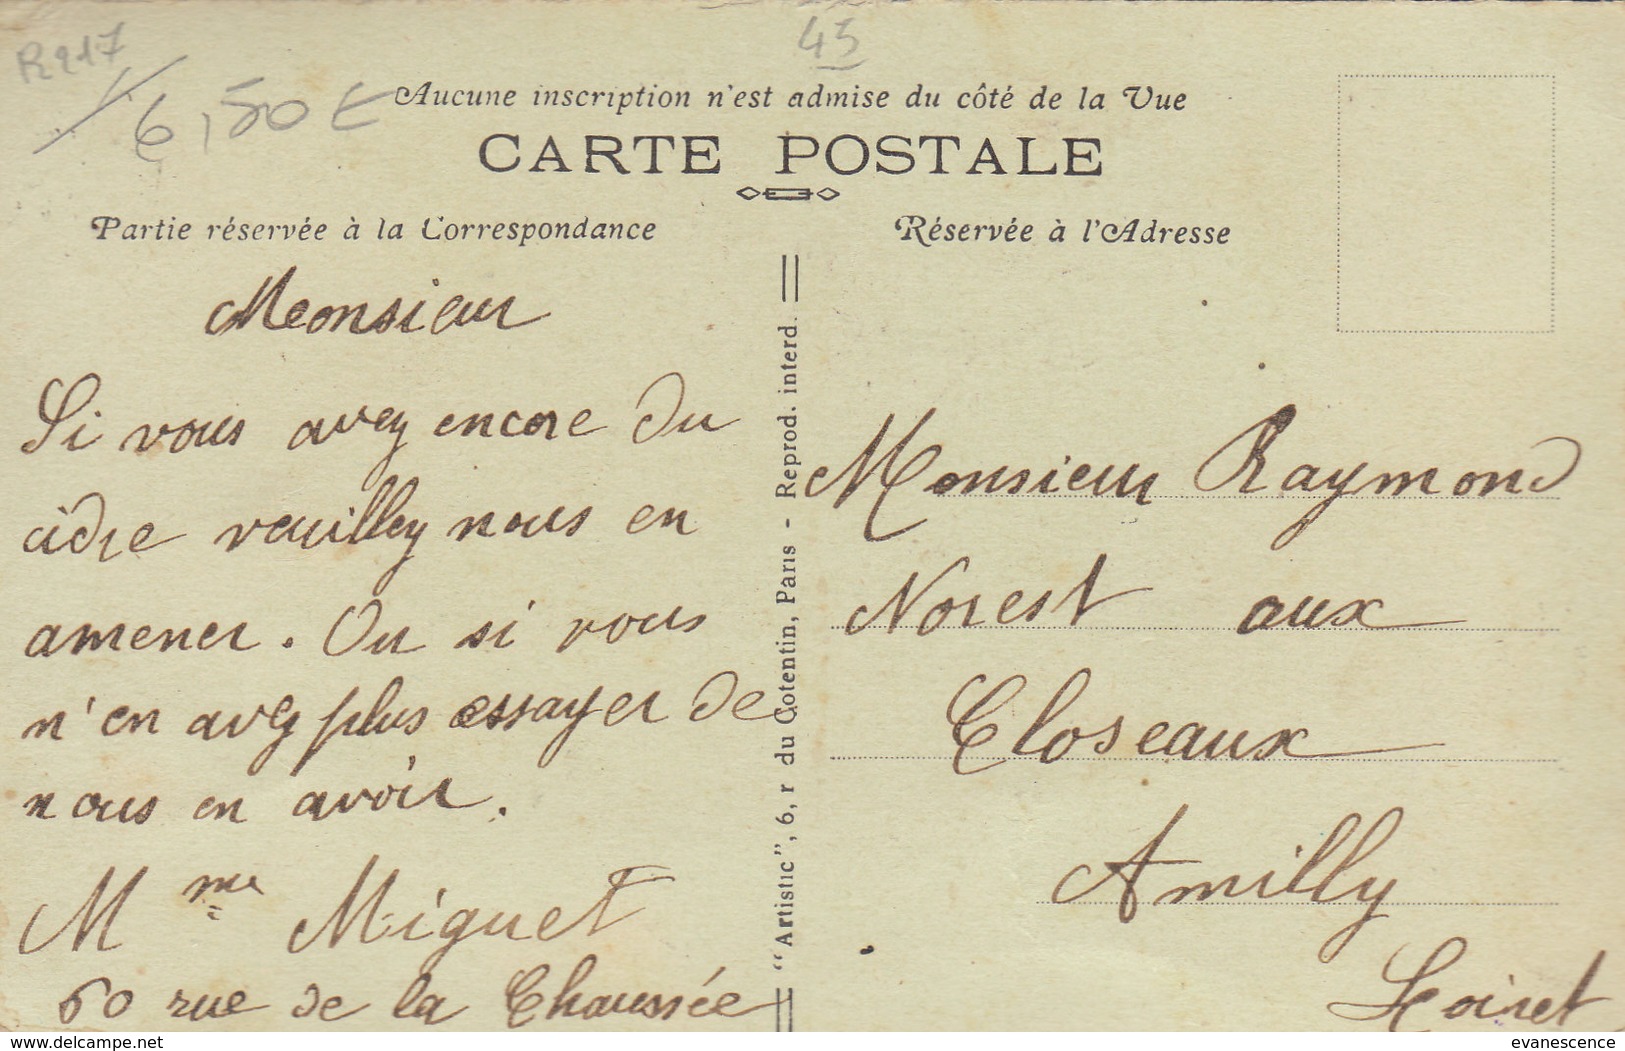 R217
45
6,50 E
Aucune inscription n'est admise du côté de la Vue
CARTE POSTALE
Partie réservée à la Correspondance
Monsieur
Si vous avez encore du
cidre veuillez nous en
amener. Ou si vous
n'en avez plus essayer de
nous en avoir.
Mme Miguet
60 rue de la Chaussée
"Artistic", 6, r du Cotentin, Paris - Reprod. interd.
Réservée à l'Adresse
Monsieur Raymond
Norest aux
Closeaux
Amilly
Loiret
delcampe.net
evanescence